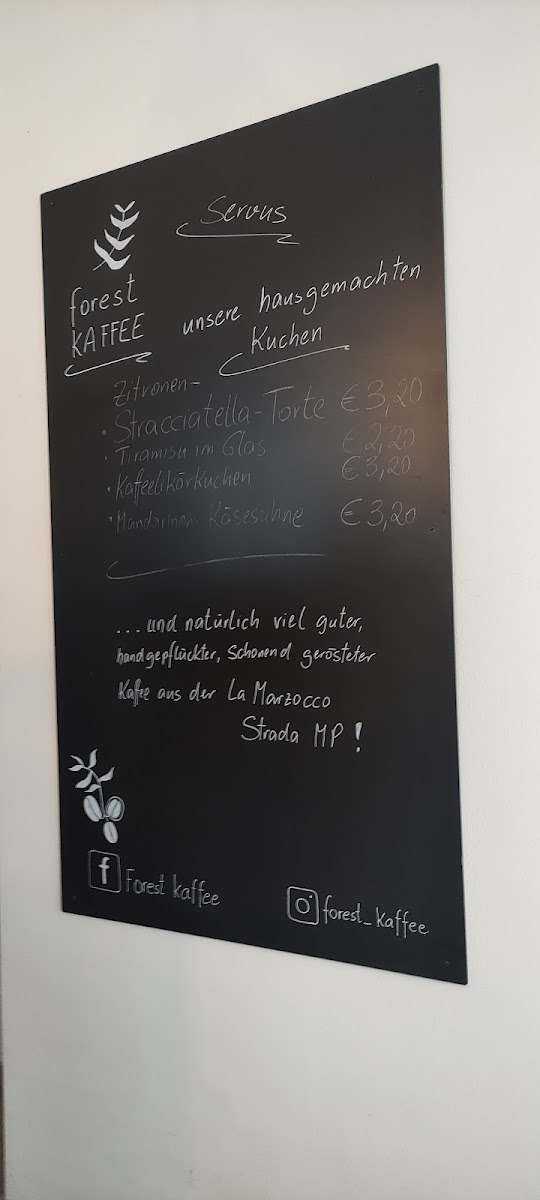 Servus
forest
KAFFEE
unsere hausgemachten
Kuchen
Zitronen-
• Stracciatella-Torte € 3,20
• Tiramisu im Glas € 2,20
• Kaffeelikörkuchen € 3,20
• Mandarinen Käsesahne € 3,20
...und natürlich viel guter,
handgepflückter, Schonend gerösteter
Kaffee aus der La Marzocco
Strada MP!
f Forest kaffee
forest_kaffee